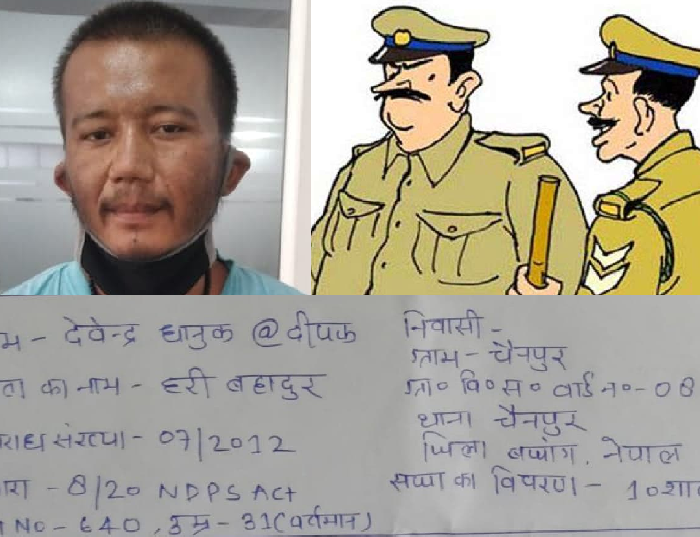 म - देवेन्द्र धानुक @ दीपक
ता का नाम - हरी बहादुर
राध संख्या - 07/2012
ारा - 8/20 NDPS Act
No - 640, उम्र - 31 (वर्तमान)
निवासी -
ग्राम - चैनपुर
ग्रा० वि० स० वार्ड न० - 08
थाना चैनपुर
जिला बझांग, नेपाल
सजा का विवरण - 10 साल